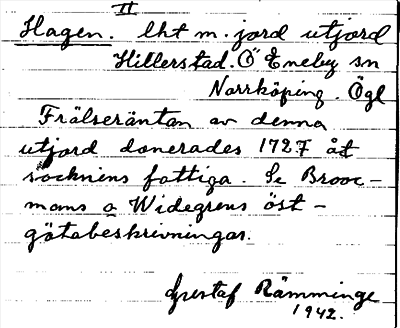 II
Hagen. lht m. jord utjord
Hillerstad. Ö Eneby sn
Norrköping. Ögl
Frälseräntan av denna
utjord donerades 1727 åt
socknens fattiga. Se Brooc-
mans o Widegrens öst-
götabeskrivningar.
Gustaf Rämminge
1942.